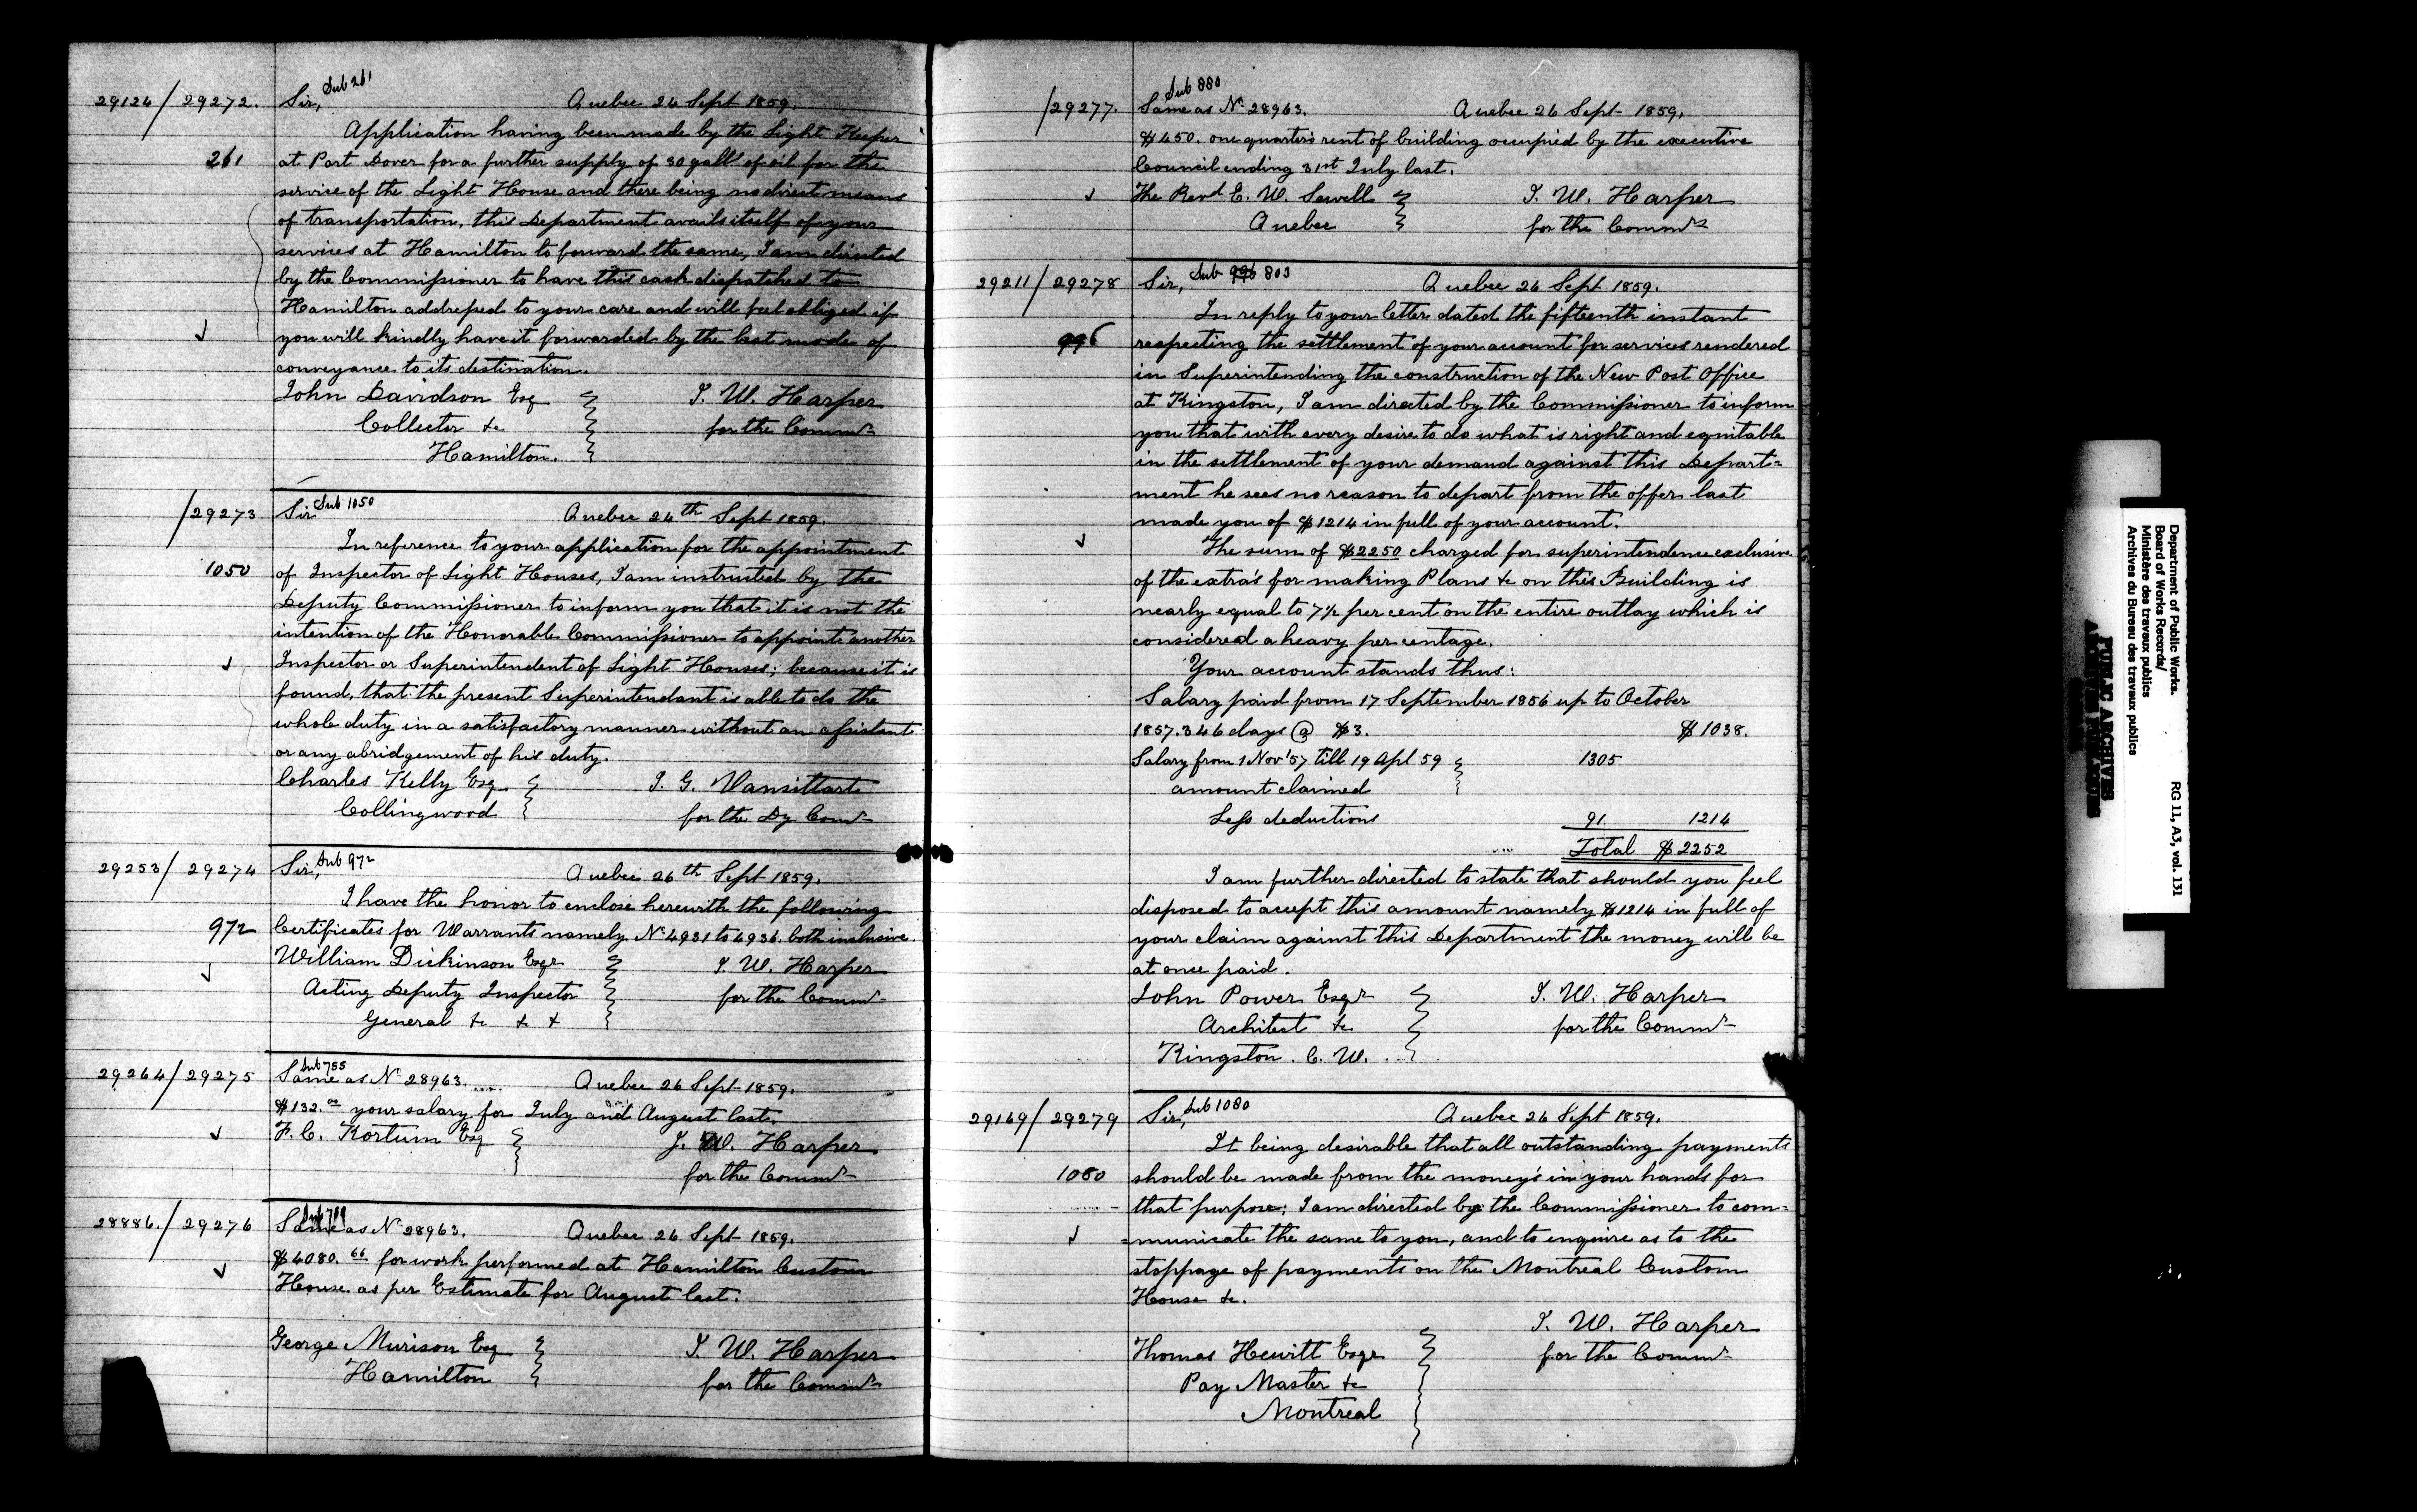 29124 / 29272. Sir, Sub 261 Quebec 24 Sept 1859.
Application having been made by the Light Keeper
261 at Port Dover for a further supply of 30 galls of oil for the
service of the Light House and there being no direct means
of transportation, this Department avails itself of your
services at Hamilton to forward the same, I am directed
by the Commissioner to have this cask dispatched to
Hamilton addressed to your care and will feel obliged if
you will kindly have it forwarded by the best mode of
conveyance to its destination.
John Davidson Esq J. W. Harper
Collector &c for the Commr
Hamilton.
/29273 Sir Sub 1050 Quebec 24th Sept 1859.
In reference to your application for the appointment
1050 of Inspector of Light Houses, I am instructed by the
Deputy Commissioner to inform you that it is not the
intention of the Honorable Commissioner to appoint another
Inspector or Superintendent of Light Houses; because it is
found, that the present Superintendant is able to do the
whole duty in a satisfactory manner without an assistant
or any abridgement of his duty.
Charles Kelly Esq J. G. Vansittart
Collingwood for the Dy Comr
29253 / 29274 Sir, Sub 972 Quebec 26th Sept 1859.
I have the honor to enclose herewith the following
972 Certificates for Warrants namely No 4931 to 4936. both inclusive.
William Dickinson Esqe J. W. Harper
Acting Deputy Inspector for the Commr
General &c &c &
29264 / 29275 Sub 755
Same as No 28963..... Quebec 26 Sept 1859.
$132.00 your salary for July and August last.
F. C. Kortum Esq J. W. Harper
for the Commr
28886. / 29276 Sub 709
Same as No 28963. Quebec 26 Sept 1859.
$4080.66 for work performed at Hamilton Custom
House as per Estimate for August last.
George Murison Esq J. W. Harper
Hamilton for the Commr
Sub 880
/29277. Same as No 28963. Quebec 26 Sept 1859.
$450. one quarter's rent of building occupied by the executive
Council ending 31st July last.
The Revd E. W. Sewell J. W. Harper
Quebec for the Commrs
29211 / 29278 Sir, Sub 996 803 Quebec 26 Sept 1859.
In reply to your letter dated the fifteenth instant
996 respecting the settlement of your account for services rendered
in Superintending the construction of the New Post Office
at Kingston, I am directed by the Commissioner to inform
you that with every desire to do what is right and equitable
in the settlement of your demand against this Depart=
ment he sees no reason to depart from the offer last
made you of $1214 in full of your account.
The sum of $2250 charged for superintendence exclusive
of the extra's for making Plans &c on this Building is
nearly equal to 7½ per cent on the entire outlay which is
considered a heavy per centage.
Your account stands thus:
Salary paid from 17 September 1856 up to October
1857. 346 days @ $3. $1038.
Salary from 1 Nov '57 till 19 Apl 59 1305
amount claimed
Less deductions 91 1214
Total $2252
I am further directed to state that should you feel
disposed to accept this amount namely $1214 in full of
your claim against this Department the money will be
at once paid.
John Power Esqr J. W. Harper
Architect &c for the Commr
Kingston. C. W.
29169 / 29279 Sir, Sub 1080 Quebec 26 Sept 1859.
It being desirable that all outstanding payments
1080 should be made from the money's in your hands for
that purpose; I am directed by the Commissioner to com=
=municate the same to you, and to enquire as to the
stoppage of payments on the Montreal Custom
House &c.
J. W. Harper
Thomas Hewitt Esqe for the Commr
Pay Master &c
Montreal
Department of Public Works.
Board of Works Records/
Ministère des travaux publics
Archives du Bureau des travaux publics
RG 11, A3, vol. 131
PUBLIC ARCHIVES